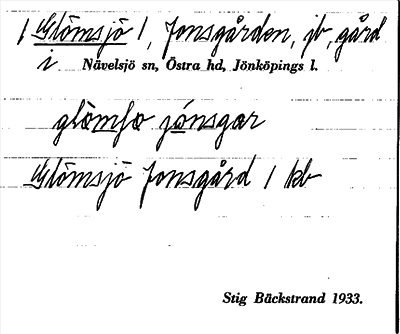 1 Glömsjö 1, Jonsgården, jb, gård
i Nävelsjö sn, Östra hd, Jönköpings l.
Glömsjö Jonsgård 1 kb
Stig Bäckstrand 1933.